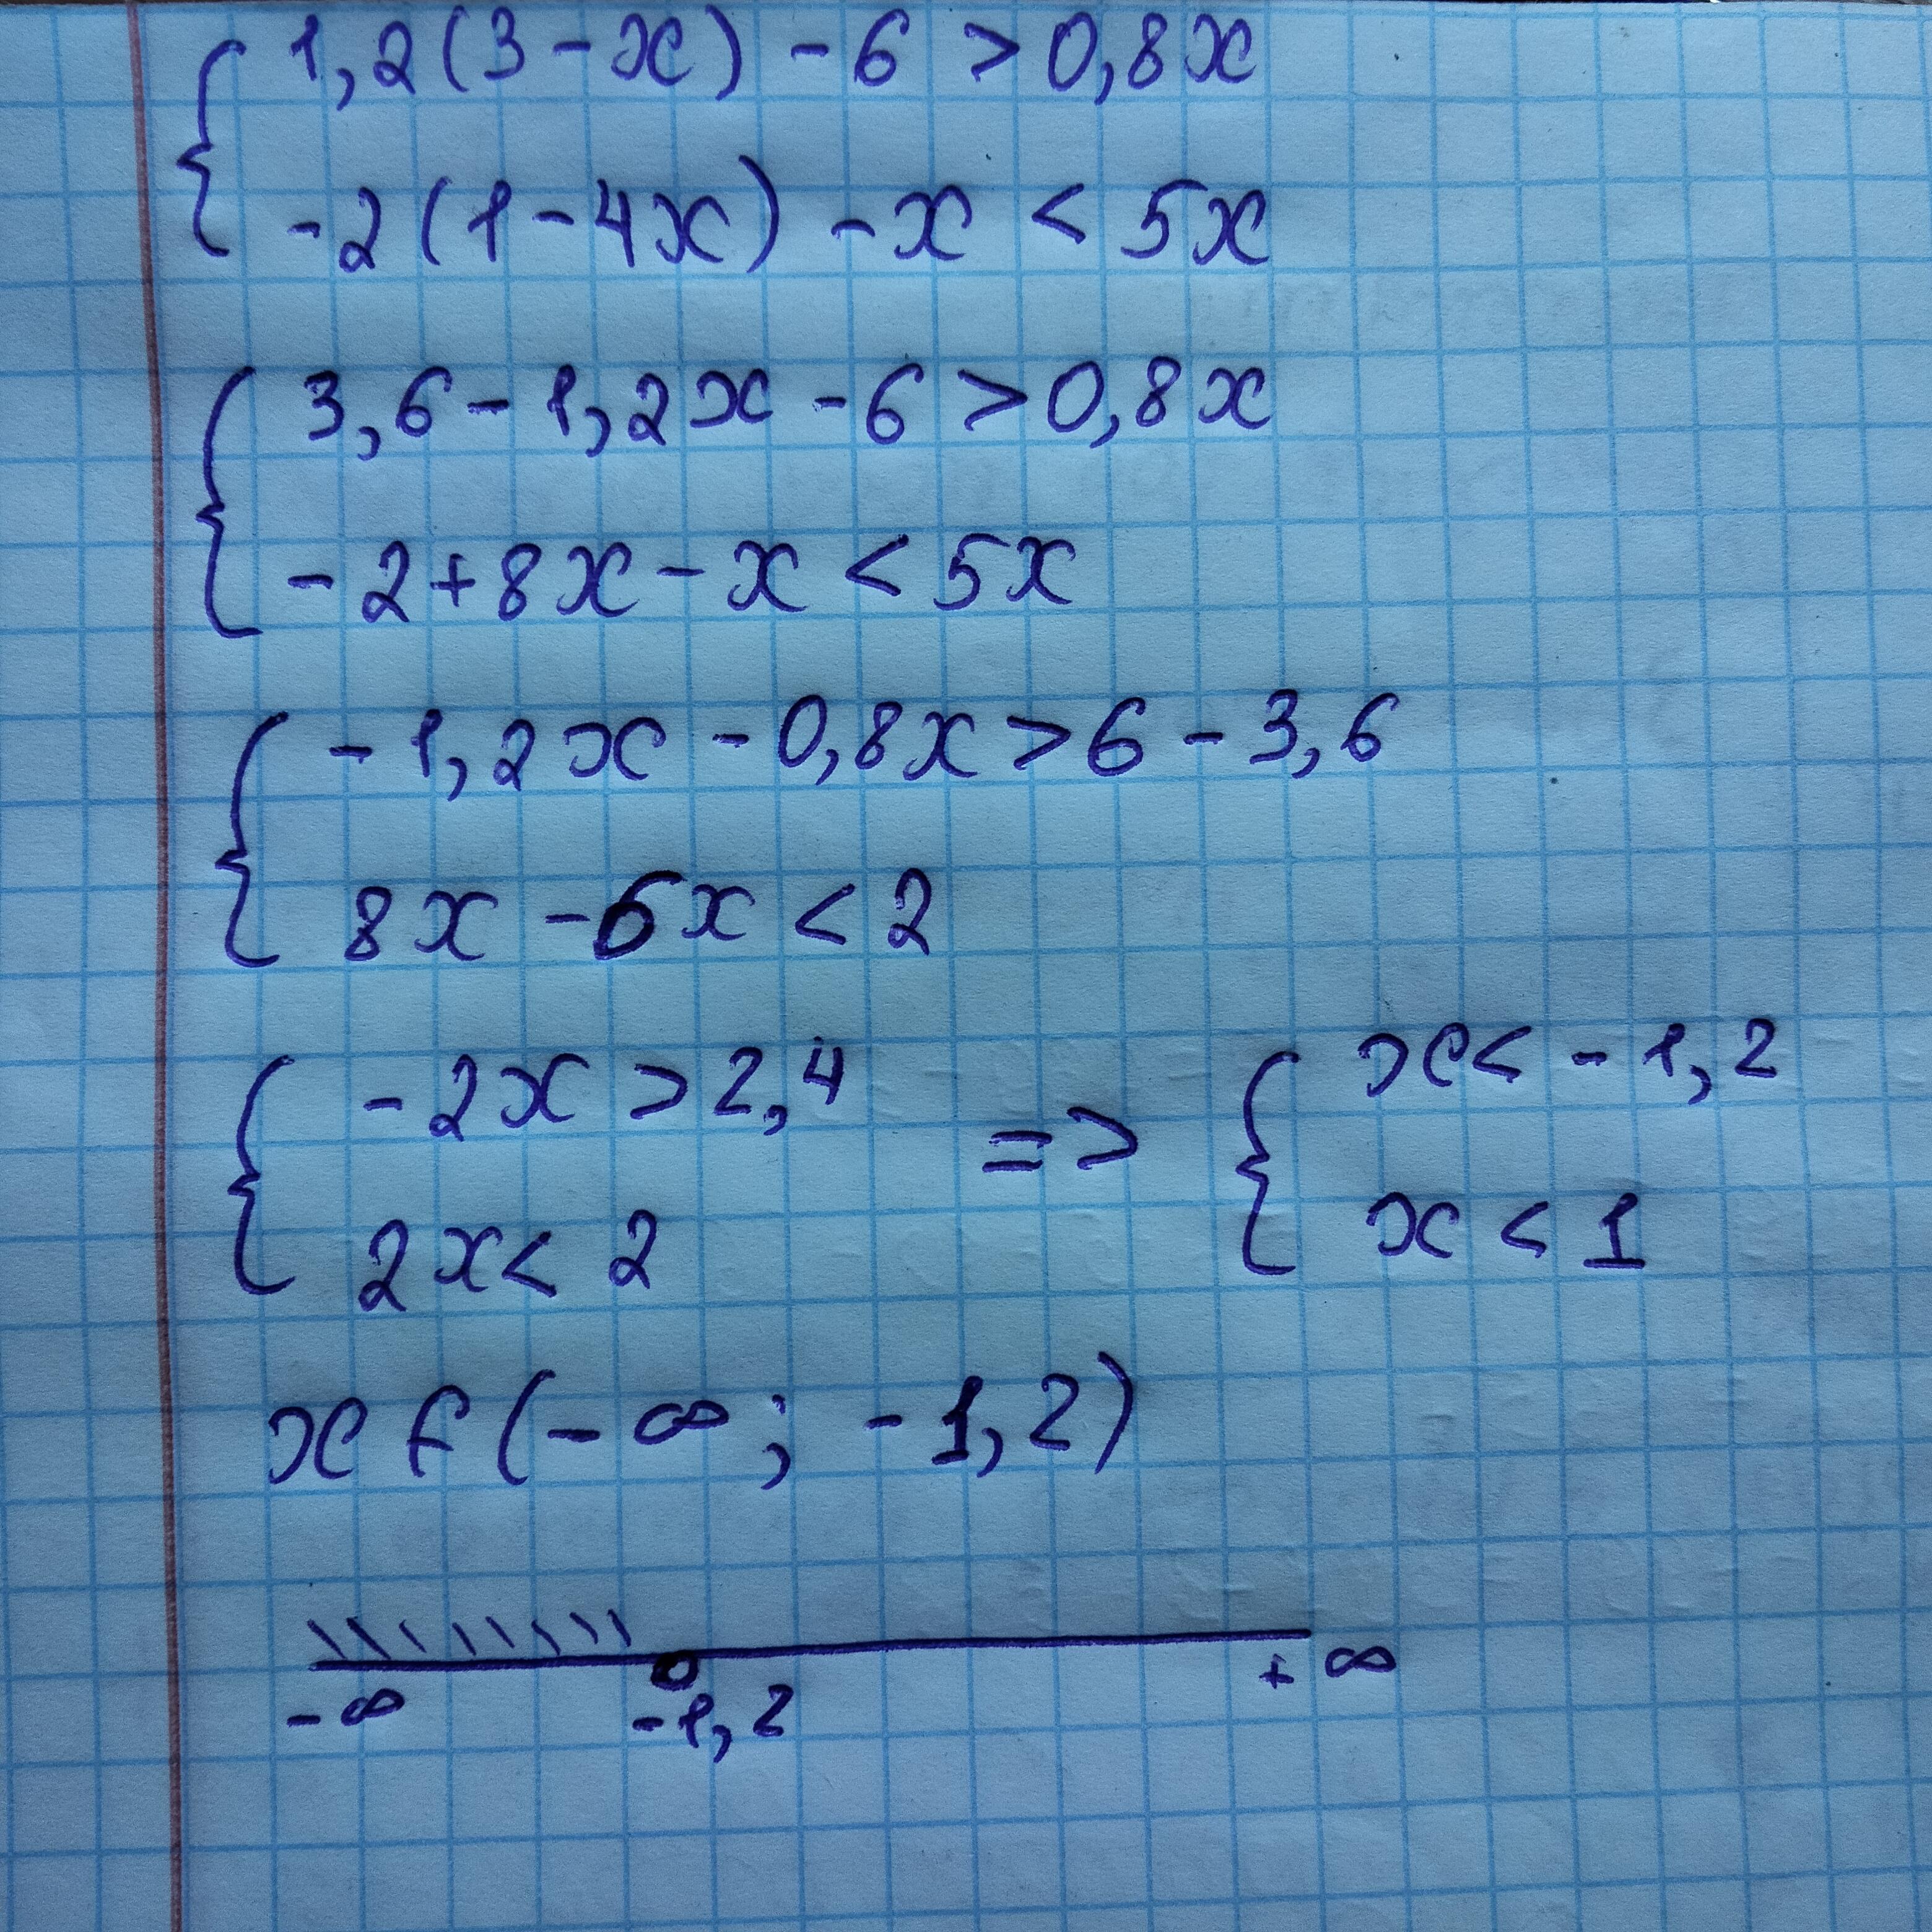 1,2(3-x)-6>0,8x
-2(1-4x)-x<5x
3,6-1,2x-6>0,8x
-2+8x-x<5x
-1,2x-0,8x>6-3,6
8x-6x<2
-2x>2,4 => x<-1,2
2x<2 x<1
x∈(-∞; -1,2)
-∞ -1,2 +∞